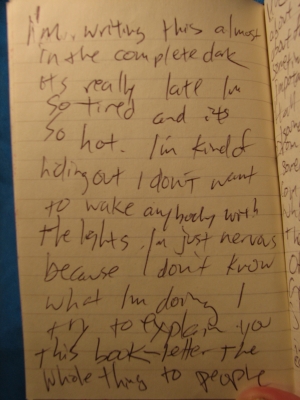 I'm writing this almost
in the complete dark
its really late Im
so tired and its
so hot. I'm kind of
hiding out I don't want
to wake anybody with
the lights. I'm just nervous
because I don't know
what I'm doing I
try to explain you
this book-letter the
whole thing to people